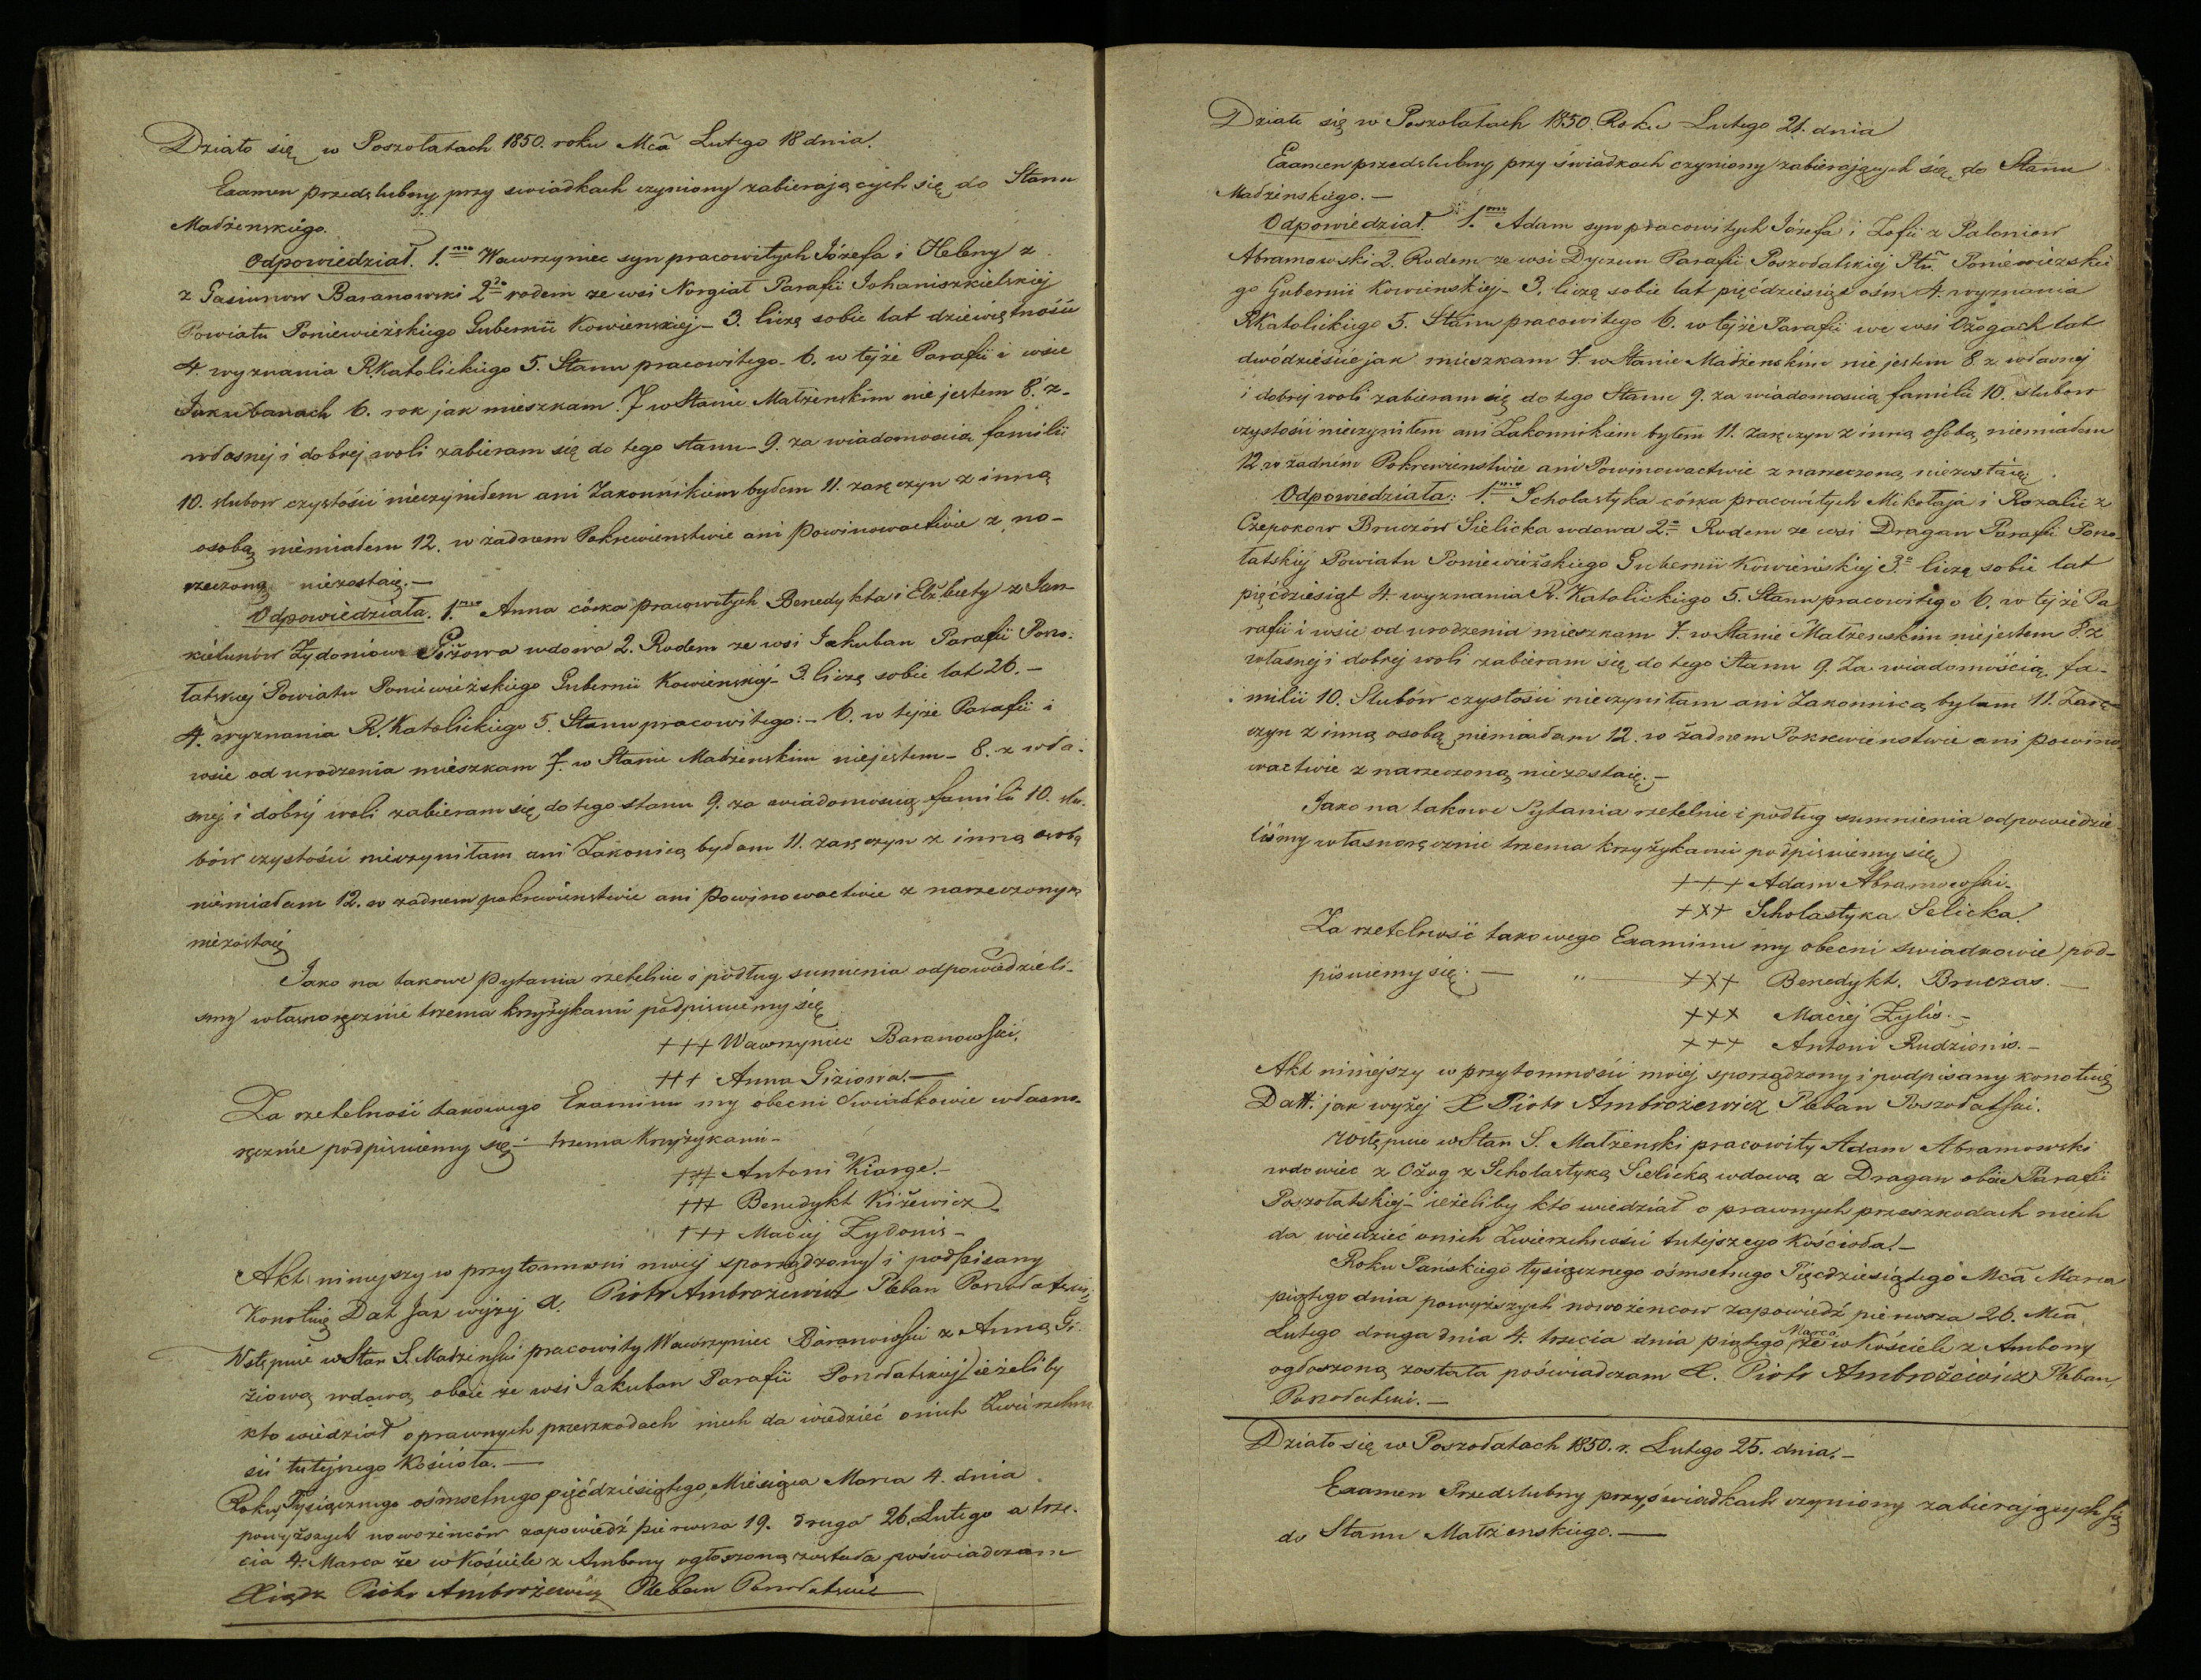 Działo się w Poszołatach 1850. roku Mca Lutego 18 dnia.
Examen przedslubny przy swiadkach czyniony zabierających się do Stanu
Małżenskiego.
Odpowiedział. 1.mo Wawrzyniec syn pracowitych Józefa i Heleny z
z Gasiunow Baranowski 2do rodem ze wsi Norgiał Parafii Johaniszkielskiej
Powiatu Poniewieżskiego Gubernii Kowienskiej – 3. liczę sobie lat dziewiętnośće
4. wyznania R.Katolickiego 5. Stanu pracowitego. 6. w tejże Parafii i wsie
Jakubanach 6. rok jak mieszkam. 7 w Stanie Małżenskim nie jestem 8. z-
własnej i dobrej woli zabieram się do tego stanu – 9. za wiadomoscią familii
10. slubow czystośći nieczyniłem ani Zakonnikiem byłem 11. zaręczyn z inną
osobą niemiałem 12. w żadnem Pokrewienstwie ani Powinowactwie z na-
rzeczoną niezostaię. –
Odpowiedziała. 1.mo Anna córka pracowitych Benedykta i Elżbiety z Jan-
kielunów Zydoniow Giżowa wdowa 2. Rodem ze wsi Jakuban Parafii Poszo-
łatskiej Powiatu Poniewieżskiego Gubernii Kowienskiej – 3. liczę sobie lat 26. –
4. wyznania R. Katolickiego 5. Stanu pracowitego: – 6. w tejże Parafii i
wsie od urodzenia mieszkam 7. w Stanie Małżenskim niejestem – 8. z wła-
snej i dobrej woli zabieram się do tego stanu 9. za wiadomoscią familii 10. slu-
bów czystośći nieczyniłam ani Zakonicą byłam 11. zaręczyn z inną osobą
niemiałam 12. w żadnem pokrewienstwie ani Powinowactwie z narzeczonym
niezostaię
Jako na takowe Pytania rzetelnie i podług sumienia odpowiedzieli-
smy własnoręcznie trzema krzyżykami podpisuiemy się
+++ Wawrzyniec Baranowski.
+++ Anna Giziowa. –
Za rzetelność takowego Examinu my obecni Swiadkowie własno-
ręcznie podpisuiemy się – trzema Krzyżykami –
+++ Antoni Kiarge. –
+++ Benedykt Kiżewicz
+++ Maciej Zydonis –
Akt ninieyszy w przytomnosci moiej sporządzony i podpisany
Konotuię Dat jak wyżej X. Piotr Ambrożewicz Pleban Poszołatski
Wstępuie w Stan S. Małżenski pracowity Wawrzyniec Baranowski z Anną Gi-
żiową wdową oboie ze wsi Jakuban Parafii Poszołatskiej ieżeliby
kto wiedział o prawnych przeszkodach niech da wiedzieć onich Zwierzchno
śći tutejszego Kościoła. –
Roku Tysiącznego ośmsetnego pięćdziesiątego Miesiąca Marca 4. dnia
powyższych nowożeńców zapowiedź pierwsza 19. druga 26. Lutego a trze-
cia 4. Marca że w Kościele z Ambony ogłoszoną została poświadczam
Xiądz Piotr Ambrożewicz Pleban Poszołatski
Działo się w Poszołatach 1850. Roku Lutego 21. dnia
Examen przedslubny, przy świadkach czyniony zabierających się do Stanu
Małżenskiego. –
Odpowiedział 1.mo Adam syn pracowitych Józefa i Zofii z Paloniow
Abramowski 2. Rodem ze wsi Dyczun Parafii Poszołatskiej Ptu. Poniewiezskie
go Gubernii Kowienskiej – 3. liczę sobie lat pięćdziesiąt ośm 4. wyznania
RKatolickiego 5. Stanu pracowitego 6. w tejże Parafii we wsi Ożogach lat
dwódzieście jak mieszkam 7. w Stanie Małżenskim nie jestem 8 z własnej
i dobrej woli zabieram się do tego Stanu 9. za wiadomoscią familii 10. slubow
czystośći nieczyniłem ani Zakonnikiem byłem 11. zaręczyn z inną osobą niemiałem
12 w żadnim Pokrewienstwie ani Powinowactwie z narzeczoną niezostaię
Odpowiedziała: 1.mo Scholastyka córka pracowitych Mikołaja i Rozalii z
Czepokow Bruczów Sielicka wdowa 2.o Rodem ze wsi Dragan Parafii Poszo-
łatskiej Powiatu Poniewiéżskiego Gubernii Kowieńskiej 3.o liczę sobie lat
pięćdziesiąt 4. wyznania R. Katolickiego 5. Stanu pracowitego 6. w tejże Pa
rafii i wsie od urodzenia mieszkam 7. w Stanie Małżenskim niejestem 8. z
własnej i dobrej woli zabieram się do tego Stanu 9. Za wiadomością fa-
milii 10. Slubów czystośći nieczyniłam ani Zakonnicą byłam 11. Zarę-
czyn z inną osobą niemiałam 12. w żadnem Pokrewienstwie ani powino
wactwie z narzeczoną niezostaię. –
Jako na takowe Pytania rzetelnie i podług sumnienia odpowiedzie
liśmy własnoręcznie trzema krzyżykami podpisuiemy się
+++ Adam Abramowski.
+++ Scholastyka Selicka.
Za rzetelność takowego Examinu my obecni swiadkowie pod-
pisuiemy się. – „ +++ Benedykt. Bruczas. –
+++ Maciej Zylis. –
+++ Antoni Rudzionis. –
Akt niniejszy w przytomnośći moiej sporządzony i podpisany konotuię
Datt. jak wyżej X Piotr Ambrożewicz Pleban Poszołatski.
Wstępuie w Stan S. Małżenski pracowity Adam Abramowski
wdowiec z Ożog z Scholastyką Sielicką wdową z Dragan oboie Parafii
Poszołatskiej – ieżeliby kto wiedział o prawnych przeszkodach niech
da wiedzieć onich Zwierzchnośći tutejszego Kościoła. –
Roku Pańskiego tysiącznego ośmsetnego Pięcdziesiątego Mca Marca
piątego dnia powyższych nowożencow zapowiedź pierwsza 26. Mca
Lutego druga dnia 4. trzecia dnia piątego Marca że w Kościele z Ambony
ogłoszoną została poświadczam X. Piotr Ambrożewicz Pleban
Poszołatski. –
Działo się w Poszołatach 1850. r. Lutego 25. dnia. –
Examen Przedslubny przy świadkach czyniony zabierających się
do Stanu Małżenskiego. –